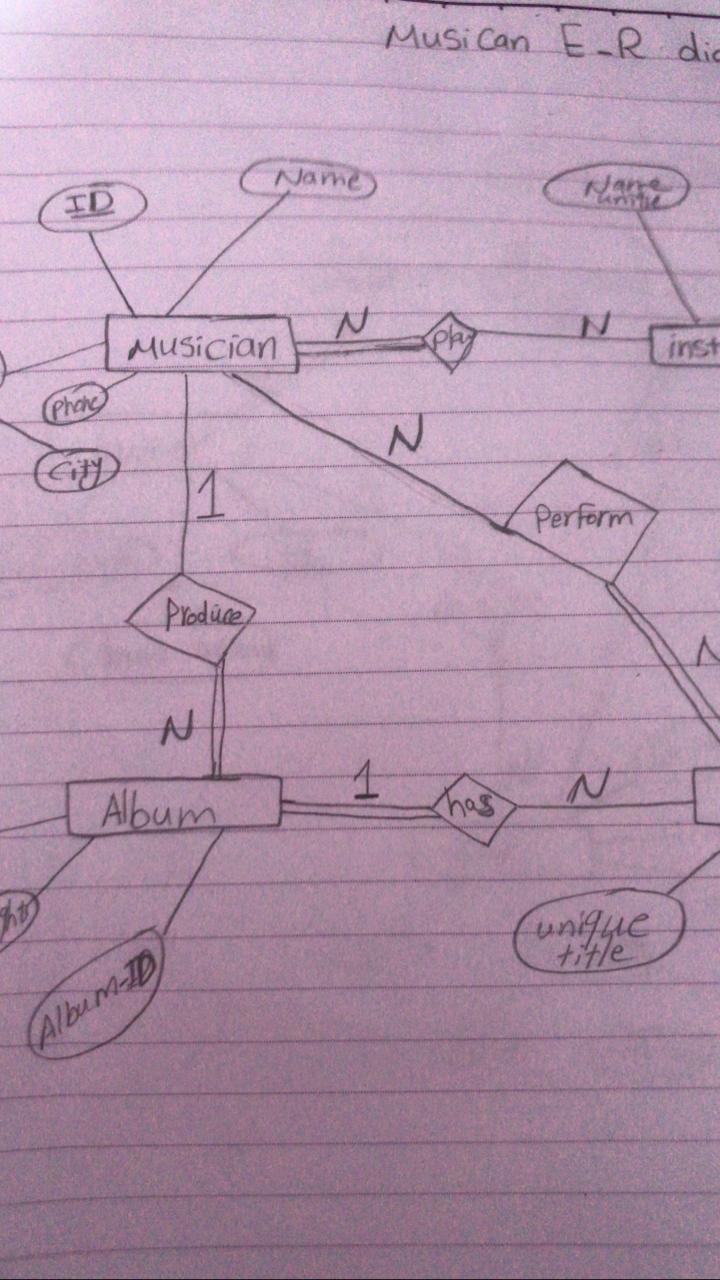 Musican E-R dia
ID
Name
Name
unique
Musician
N
play
N
inst
Phone
City
N
1
Perform
Produce
N
N
Album
1
has
N
unique
title
Album-ID